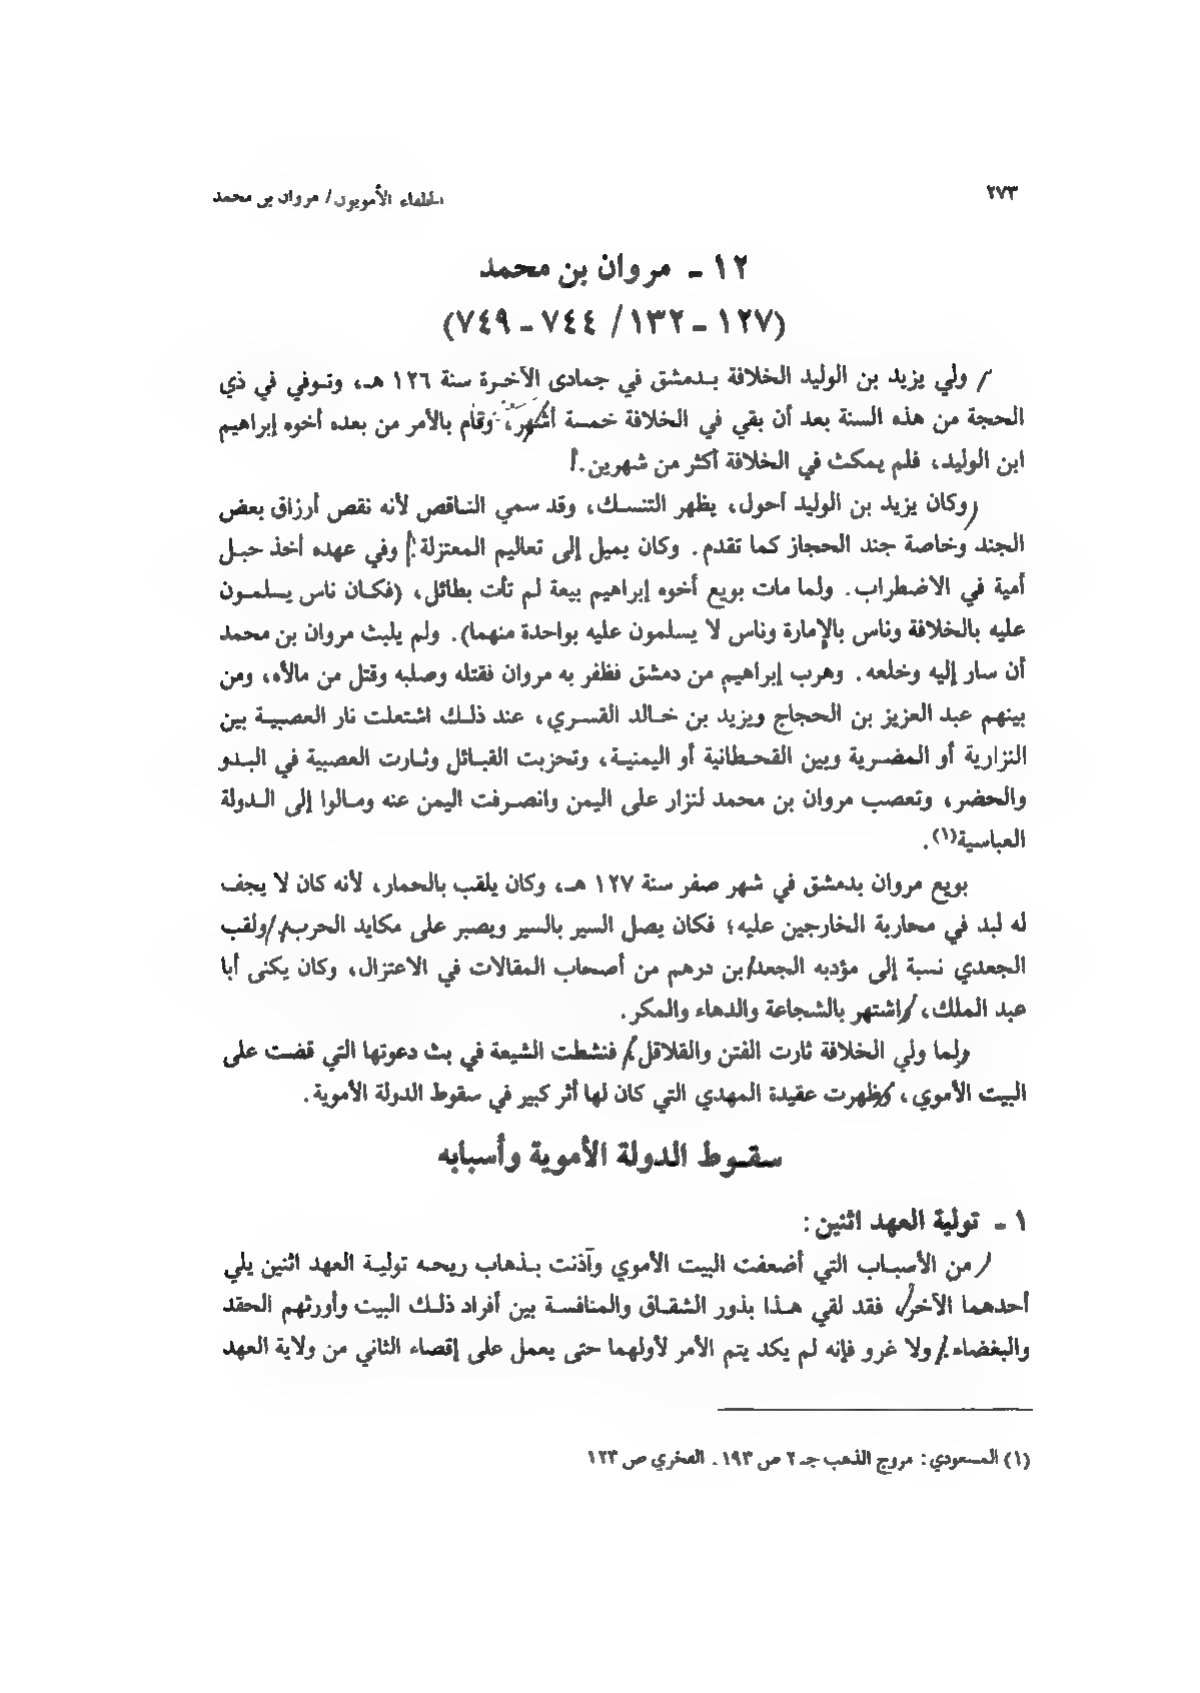 ٢٧٣
الخلفاء الأمويون / مروان بن محمد
١٢ - مروان بن محمد
(١٢٧ - ١٣٢ / ٧٤٤ - ٧٤٩)
ولي يزيد بن الوليد الخلافة بدمشق في جمادى الآخرة سنة ١٢٦ هـ، وتوفي في ذي
الحجة من هذه السنة بعد أن بقي في الخلافة خمسة أشهر، وقام بالأمر من بعده أخوه إبراهيم
ابن الوليد، فلم يمكث في الخلافة أكثر من شهرين.
وكان يزيد بن الوليد أحول، يظهر التنسك، وقد سمي الناقص لأنه نقص أرزاق بعض
الجند وخاصة جند الحجاز كما تقدم. وكان يميل إلى تعاليم المعتزلة. وفي عهده أخذ حبل
أمية في الاضطراب. ولما مات بويع أخوه إبراهيم بيعة لم تأت بطائل، (فكان ناس يسلمون
عليه بالخلافة وناس بالإمارة وناس لا يسلمون عليه بواحدة منهما). ولم يلبث مروان بن محمد
أن سار إليه وخلعه. وهرب إبراهيم من دمشق فظفر به مروان فقتله وصلبه وقتل من مالأه، ومن
بينهم عبد العزيز بن الحجاج ويزيد بن خالد القسري، عند ذلك اشتعلت نار العصبية بين
النزارية أو المضرية وبين القحطانية أو اليمنية، وتحزبت القبائل وثارت العصبية في البدو
والحضر، وتعصب مروان بن محمد لنزار على اليمن وانصرفت اليمن عنه ومالوا إلى الدولة
العباسية(١).
بويع مروان بدمشق في شهر صفر سنة ١٢٧ هـ، وكان يلقب بالحمار، لأنه كان لا يجف
له لبد في محاربة الخارجين عليه؛ فكان يصل السير بالسير ويصبر على مكايد الحرب. ولقب
الجعدي نسبة إلى مؤدبه الجعد بن درهم من أصحاب المقالات في الاعتزال، وكان يكنى أبا
عبد الملك، واشتهر بالشجاعة والدهاء والمكر.
ولما ولي الخلافة ثارت الفتن والقلاقل، فنشطت الشيعة في بث دعوتها التي قضت على
البيت الأموي، وظهرت عقيدة المهدي التي كان لها أثر كبير في سقوط الدولة الأموية.
سقوط الدولة الأموية وأسبابه
١ - تولية العهد اثنين:
من الأسباب التي أضعفت البيت الأموي وآذنت بذهاب ريحه تولية العهد اثنين يلي
أحدهما الآخر، فقد لقي هذا بذور الشقاق والمنافسة بين أفراد ذلك البيت وأورثهم الحقد
والبغضاء. ولا غرو فإنه لم يكد يتم الأمر لأولهما حتى يعمل على إقصاء الثاني من ولاية العهد
(١) المسعودي: مروج الذهب جـ ٢ ص ١٩٣. الفخري ص ١٢٣